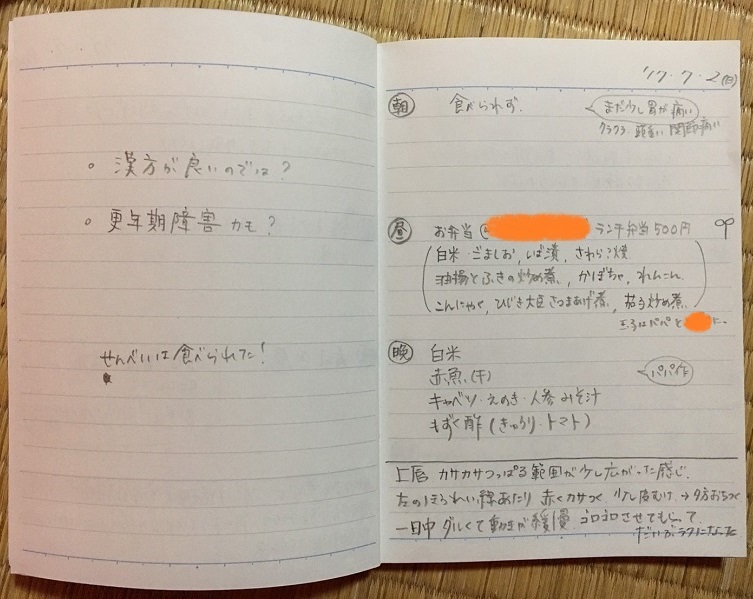 。漢方が良いのでは?
。更年期障害かも?
せんべいは食べられた!
'17・7・2(日)
朝 食べられず.
まだ少し胃が痛い
クラクラ 頭重い 関節痛い
昼 お弁当 ランチ弁当500円
白米・ごましお, しば漬, さわら?焼
油揚とふきの炒め煮, かぼちゃ, れんこん
こんにゃく, ひじき大豆さつまあげ煮, 茄子炒め煮
はパパと に.
晩 白米
赤魚(干)
パパ作
キャベツ・えのき・人参みそ汁
もずく酢(きゅうり・トマト)
上唇 カサカサつっぱる範囲が少し広がった感じ.
左のほうれい線あたり 赤くカサつく. 少し皮むけ → 夕方おちつく
一日中 ダルくて動きが緩慢 ゴロゴロさせてもらって
だいぶラクになった